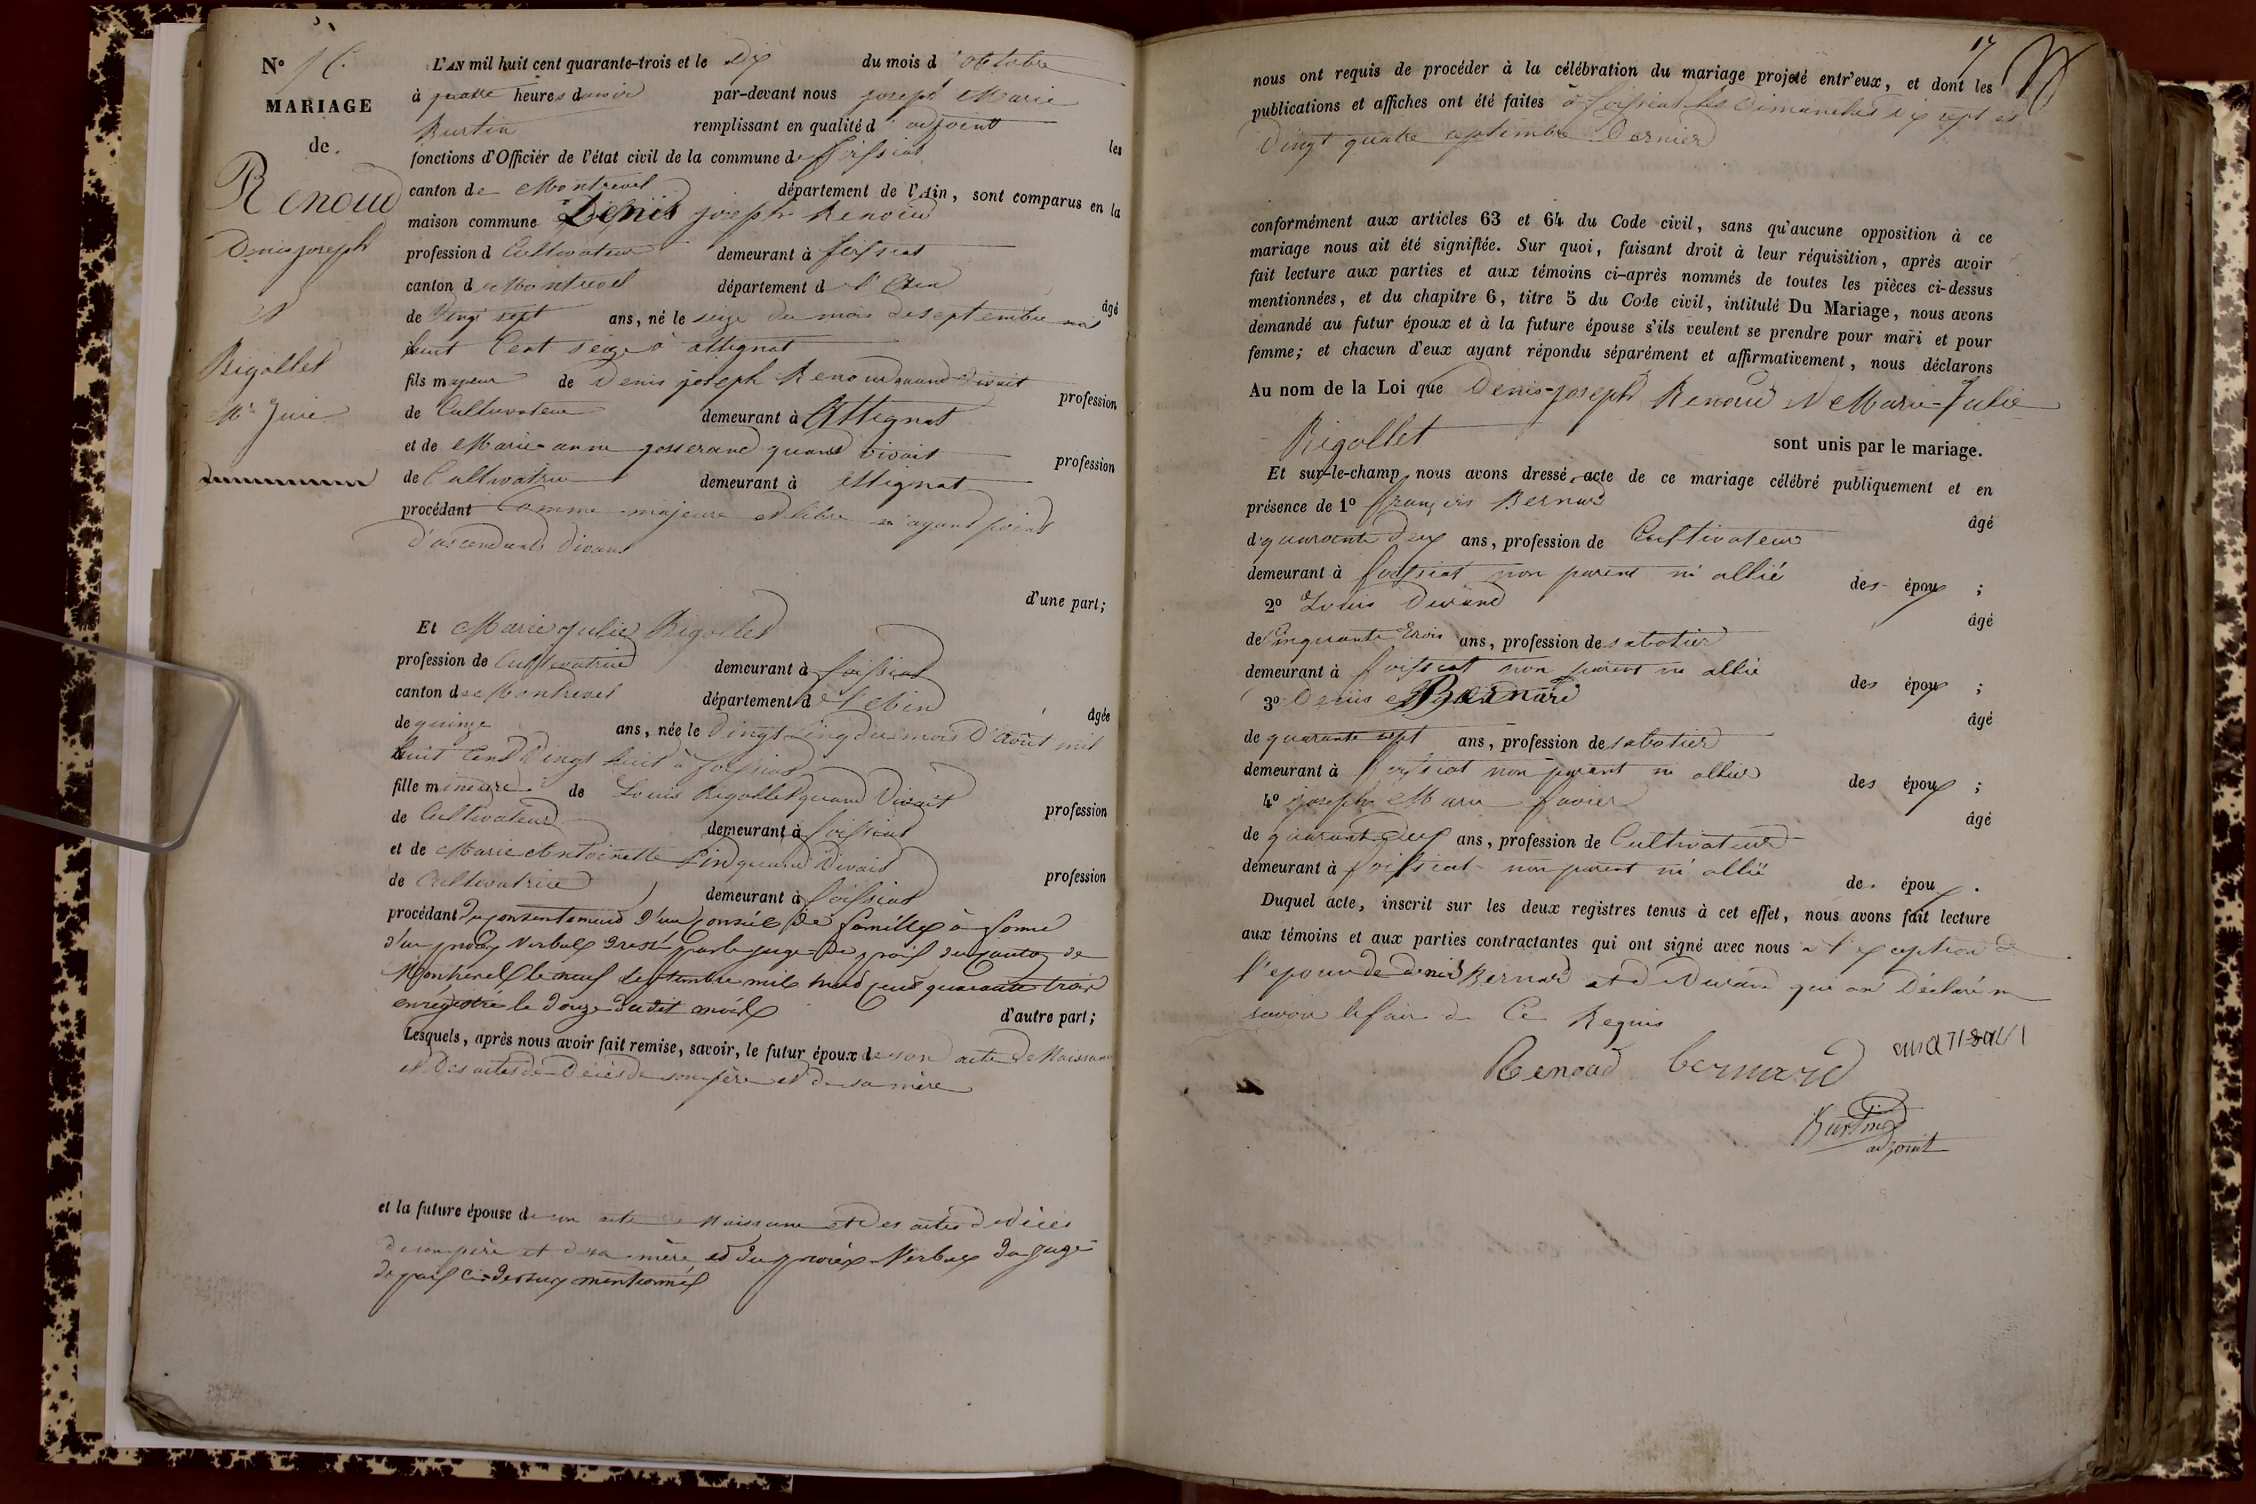 N° 16
MARIAGE
de
Renoud
Denis joseph
et
Rigollet
Mie Julie
L'AN mil huit cent quarante-trois et le Dix du mois d'octobre
à quatre heures du soir par-devant nous joseph Marie
Burtin remplissant en qualité d'adjoint les
fonctions d'Officier de l'état civil de la commune de foissiat
canton de Montrevel département de l'Ain, sont comparus en la
maison commune Denis joseph Renoud
profession d Cultivateur demeurant à foissiat
canton de Montrevel département d l'Ain âgé
de Vingt sept ans, né le seize du mois de septembre mil
huit Cent seize à attignat
fils majeur de Denis joseph Renoud quand Vivait profession
de Cultivateur demeurant à Attignat
et de Marie anne josserand quand vivait profession
de Cultivatrice demeurant à Attignat
procédant Comme majeure et libre n'ayant point
d'ascendants Vivant
d'une part;
Et Marie julie Rigollet
profession de Cultivatrice demeurant à foissiat
canton de Montrevel département d l'Ain âgée
de quinze ans, née le Vingt Cinq du mois D'août mil
huit Cent Vingt huit à foissiat
fille mineure de Louis Rigollet quand Vivait profession
de Cultivateur demeurant à foissiat
et de Marie Antoinette Pin quand Vivait profession
de Cultivatrice demeurant à foissiat
procédant du consentement d'un Conseil de famille à forme
d'un procès Verbal dressé par le juge de paix du canton de
Montrevel le neuf septembre mil huit cent quarante trois
enregistré le douze dudit mois d'autre part;
Lesquels, après nous avoir fait remise, savoir, le futur époux de son acte de Naissance
et Des actes de Décès de son père et de sa mère
et la future épouse de son acte de Naissance et Des actes de décès
de son père et de sa mère et du procès Verbal du juge
de paix ci-dessus mentionnés
17
nous ont requis de procéder à la célébration du mariage projeté entr'eux, et dont les
publications et affiches ont été faites à foissiat les Dimanches dix sept et
Vingt quatre septembre Dernier
conformément aux articles 63 et 64 du Code civil, sans qu'aucune opposition à ce
mariage nous ait été signifiée. Sur quoi, faisant droit à leur réquisition, après avoir
fait lecture aux parties et aux témoins ci-après nommés de toutes les pièces ci-dessus
mentionnées, et du chapitre 6, titre 5 du Code civil, intitulé Du Mariage, nous avons
demandé au futur époux et à la future épouse s'ils veulent se prendre pour mari et pour
femme; et chacun d'eux ayant répondu séparément et affirmativement, nous déclarons
Au nom de la Loi que Denis-joseph Renoud et Marie-Julie
Rigollet sont unis par le mariage.
Et sur-le-champ nous avons dressé acte de ce mariage célébré publiquement et en
présence de 1° françois Bernard âgé
d quarante deux ans, profession de Cultivateur
demeurant à foissiat non parent ni allié des époux ;
2° Louis Durand âgé
de Cinquante trois ans, profession de sabotier
demeurant à foissiat non parent ni allié des époux ;
3° Denis Bernard âgé
de quarante sept ans, profession de sabotier
demeurant à foissiat non parent ni allié des époux ;
4° joseph Marie favier âgé
de quarante deux ans, profession de Cultivateur
demeurant à foissiat non parent ni allié de époux .
Duquel acte, inscrit sur les deux registres tenus à cet effet, nous avons fait lecture
aux témoins et aux parties contractantes qui ont signé avec nous à l'exception de
l'épouse de denis Bernard et d Durand qui ont Déclaré ne
savoir le faire de Ce Requis
Renoud bernard
Burtin
adjoint